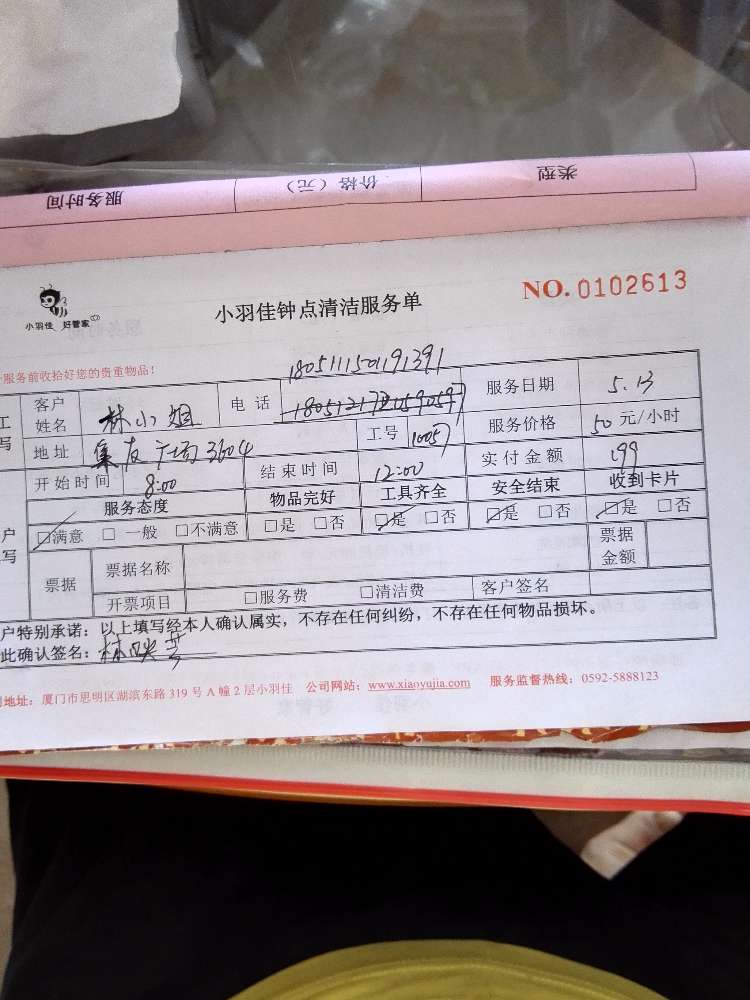 类型 价格（元） 服务时间
小羽佳 好管家
小羽佳钟点清洁服务单
NO. 0102613
服务前收拾好您的贵重物品！
180511150191391
客户姓名 林小姐 电话 服务日期 5.13
地址 集友广场3604 工号 10057 服务价格 50元/小时
开始时间 8:00 结束时间 12:00 实付金额 199
服务态度 物品完好 工具齐全 安全结束 收到卡片
☑满意 □一般 □不满意 □是 □否 ☑是 □否 ☑是 □否 ☑是 □否
票据 票据名称 票据金额
开票项目 □服务费 □清洁费 客户签名
户特别承诺：以上填写经本人确认属实，不存在任何纠纷，不存在任何物品损坏。
此确认签名：
地址：厦门市思明区湖滨东路319号A幢2层小羽佳 公司网站：www.xiaoyujia.com 服务监督热线：0592-5888123